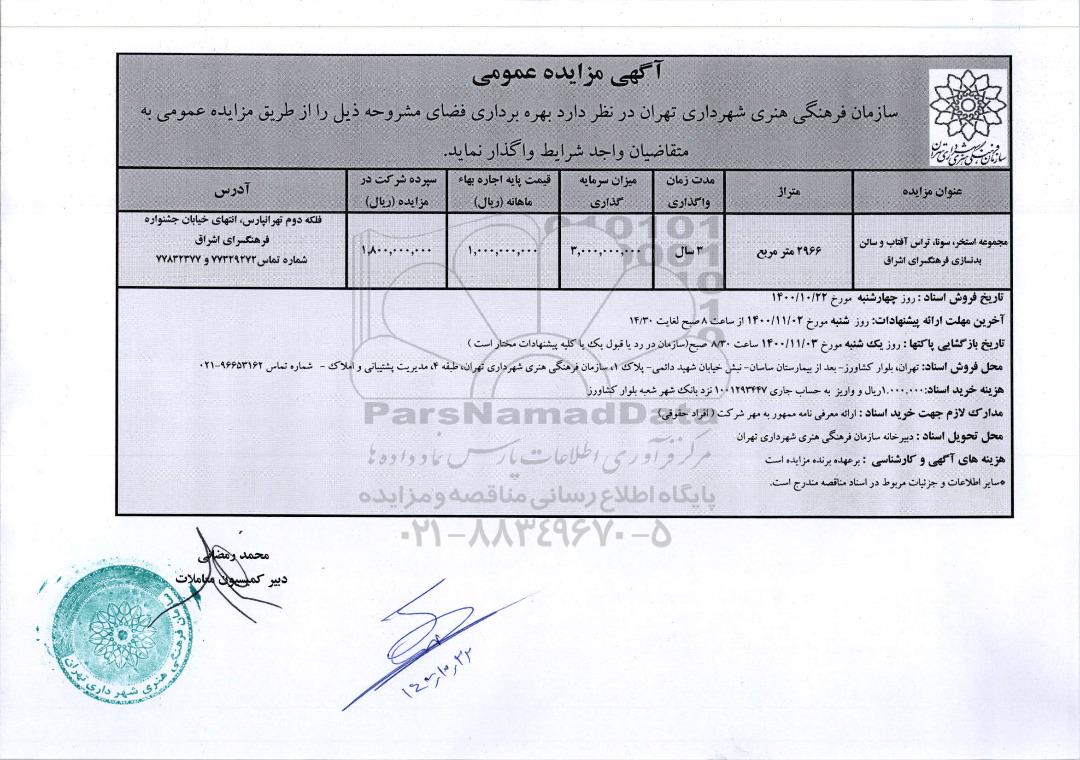 آگهی مزایده عمومی
سازمان فرهنگی هنری شهرداری تهران در نظر دارد بهره برداری فضای مشروحه ذیل را از طریق مزایده عمومی به
متقاضیان واجد شرایط واگذار نماید.
سازمان فرهنگی هنری شهرداری تهران
عنوان مزایده
متراژ
مدت زمان واگذاری
میزان سرمایه گذاری
قیمت پایه اجاره بهاء ماهانه (ریال)
سپرده شرکت در مزایده (ریال)
آدرس
مجموعه استخر، سونا، تراس آفتاب و سالن
بدنسازی فرهنگسرای اشراق
۲۹۶۶ متر مربع
۳ سال
۳,۰۰۰,۰۰۰,۰۰۰
۱,۰۰۰,۰۰۰,۰۰۰
۱,۸۰۰,۰۰۰,۰۰۰
فلکه دوم تهرانپارس، انتهای خیابان جشنواره
فرهنگسرای اشراق
شماره تماس۷۷۳۲۹۲۷۲ و ۷۷۸۳۲۳۷۷
تاریخ فروش اسناد : روز چهارشنبه مورخ ۱۴۰۰/۱۰/۲۲
آخرین مهلت ارائه پیشنهادات: روز شنبه مورخ ۱۴۰۰/۱۱/۰۲ از ساعت ۸ صبح لغایت ۱۴/۳۰
تاریخ بازگشایی پاکتها : روز یک شنبه مورخ ۱۴۰۰/۱۱/۰۳ ساعت ۸/۳۰ صبح(سازمان در رد یا قبول یک یا کلیه پیشنهادات مختار است )
محل فروش اسناد: تهران، بلوار کشاورز- بعد از بیمارستان ساسان- نبش خیابان شهید دائمی- پلاک ۱، سازمان فرهنگی هنری شهرداری تهران، طبقه ۴، مدیریت پشتیبانی و املاک - شماره تماس ۹۶۶۵۳۱۶۲-۰۲۱
هزینه خرید اسناد:۱.۰۰۰.۰۰۰ریال و واریز به حساب جاری ۱۰۰۱۲۹۳۴۴۷ نزد بانک شهر شعبه بلوار کشاورز
مدارک لازم جهت خرید اسناد : ارائه معرفی نامه ممهور به مهر شرکت ( افراد حقوقی)
محل تحویل اسناد : دبیرخانه سازمان فرهنگی هنری شهرداری تهران
هزینه های آگهی و کارشناسی : برعهده برنده مزایده است
*سایر اطلاعات و جزئیات مربوط در اسناد مناقصه مندرج است.
ParsNamadData
مرکز فرآوری اطلاعات پارس نماد داده ها
پایگاه اطلاع رسانی مناقصه و مزایده
۰۲۱-۸۸۳۴۹۶۷۰-۵
محمد رمضانی
دبیر کمیسیون معاملات
سازمان فرهنگی هنری شهرداری تهران